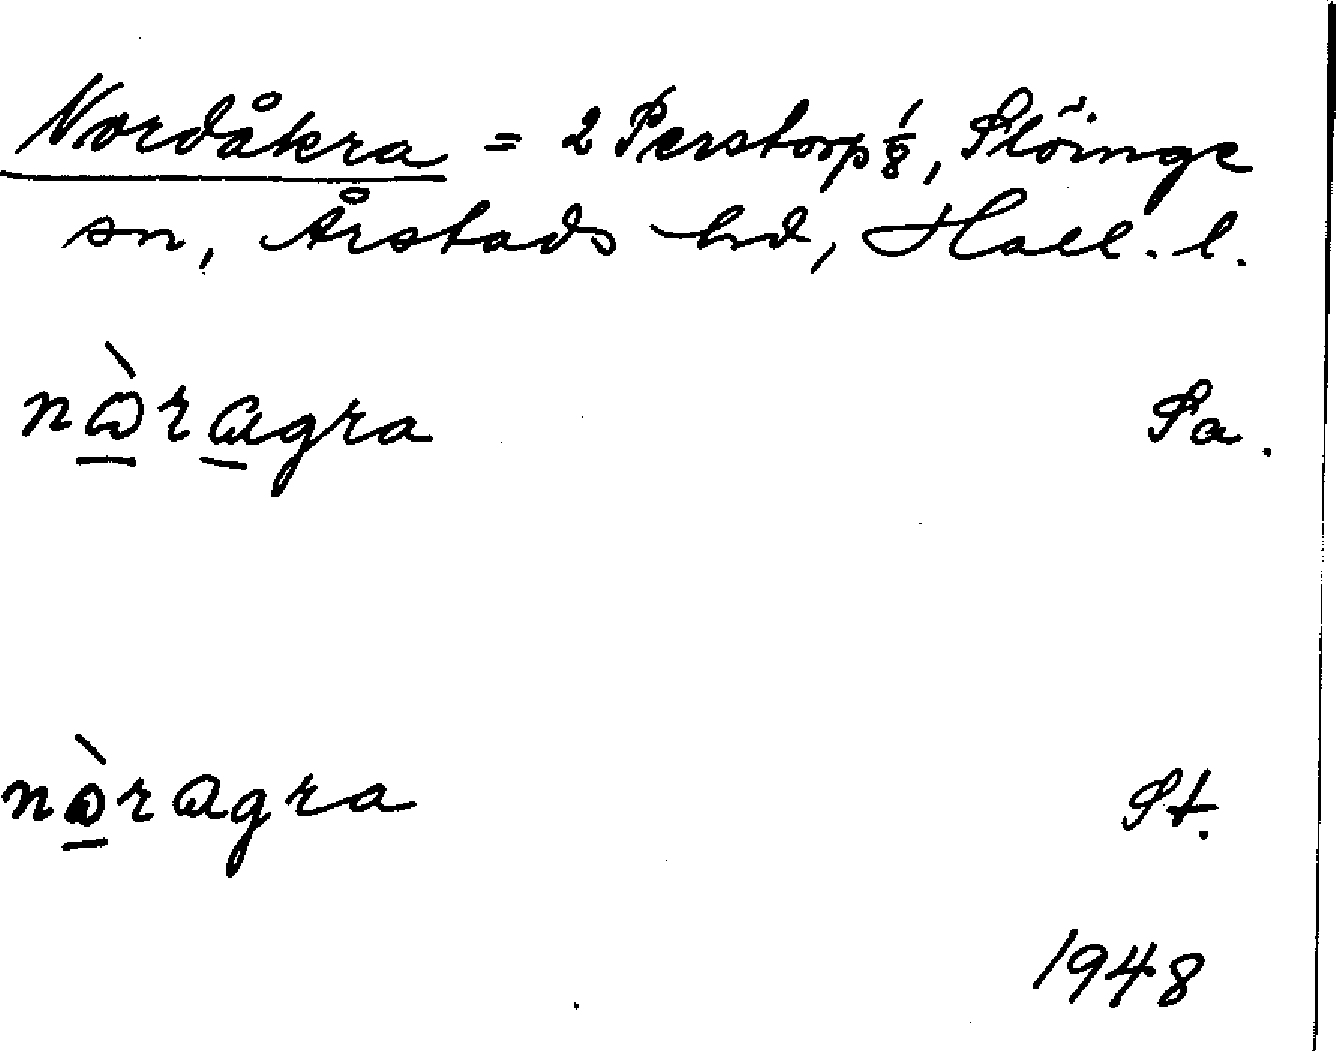 Nordåkra = 2 Perstorp 1/8, Slöinge
sn, Årstads hd, Hall. l.
nɷ̱̀rɑ̱gra Sa.
nɷ̱̀rɑgra St.
1948